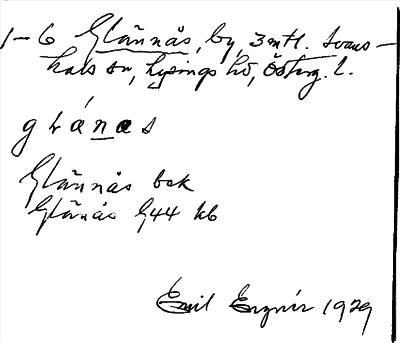 1–6 Glännås, by, 3 mtl. Svans-
hals sn, Lysings hd, Österg. l.
g l ä́ n a s
Glännås bok
Glänås 1544 kb
Emil 1929